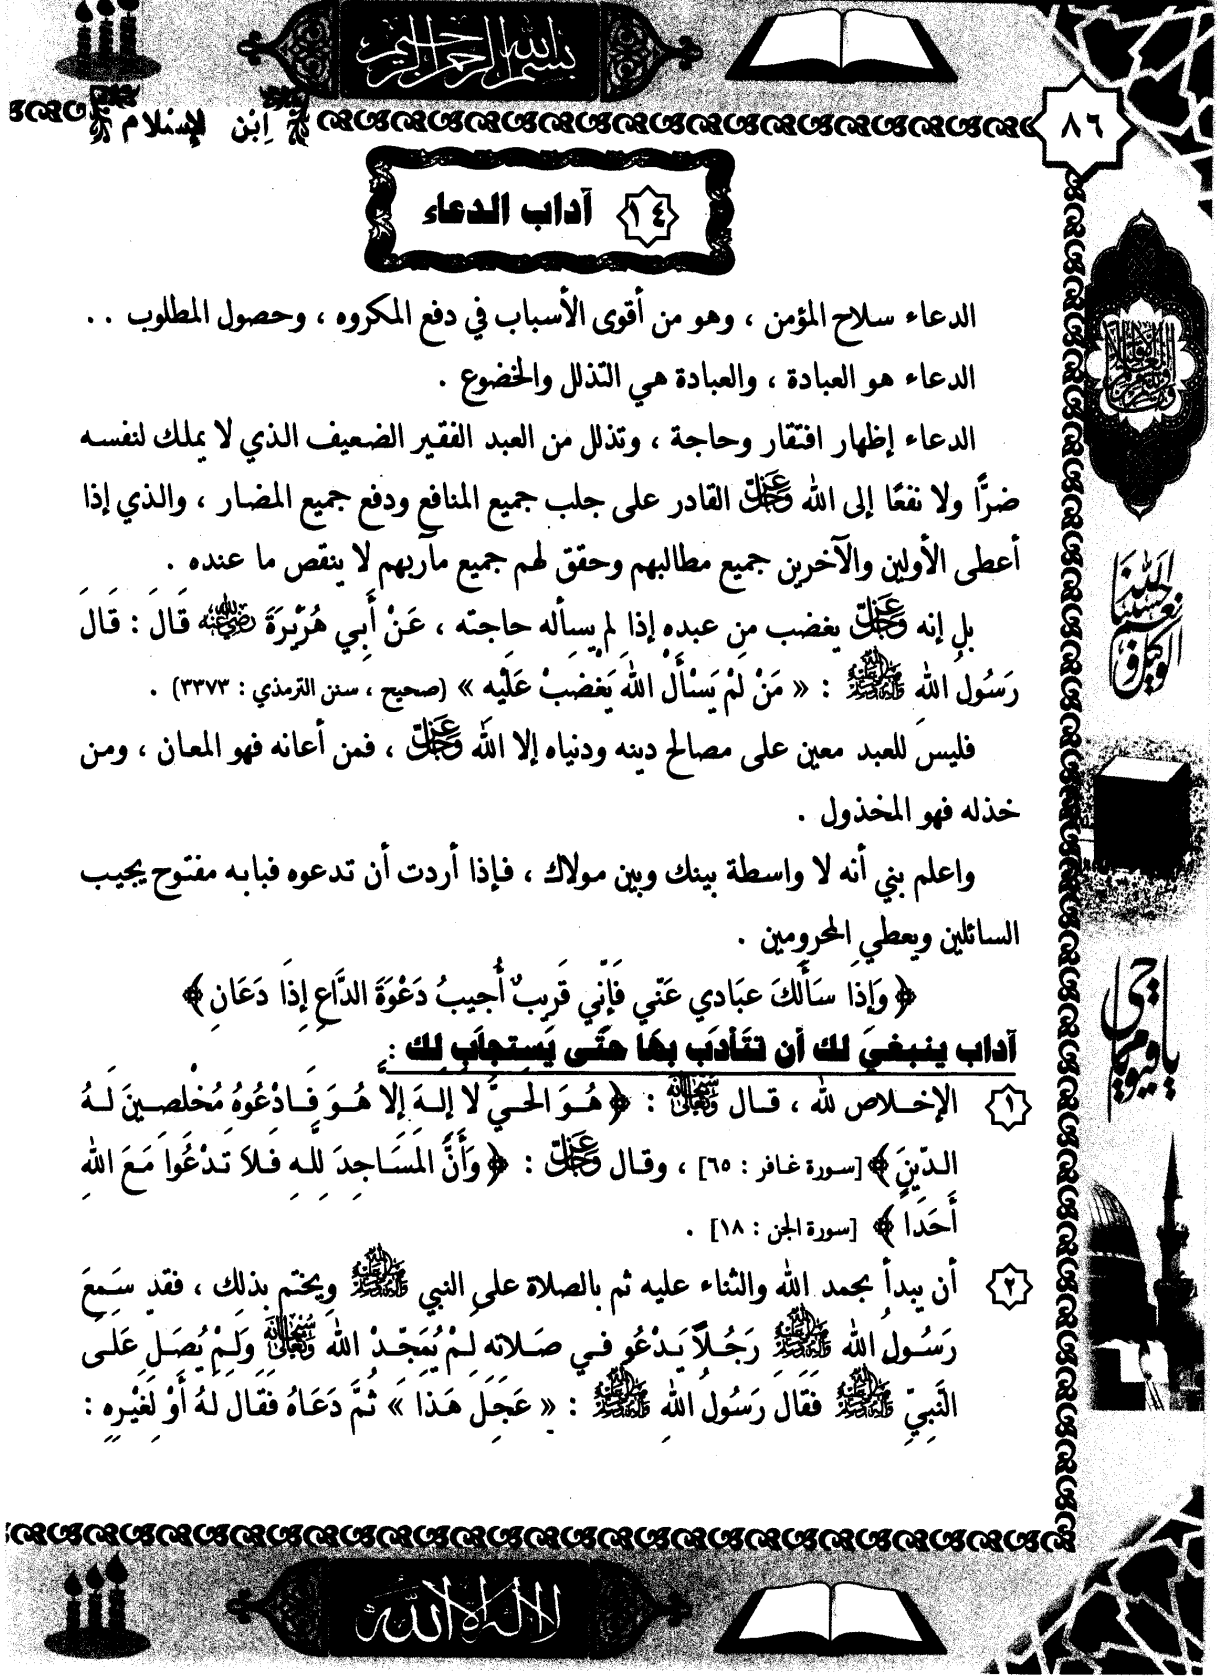 بسم الله الرحمن الرحيم
ابن الإسلام
٨٦
١٤ آداب الدعاء
الدعاء سلاح المؤمن ، وهو من أقوى الأسباب في دفع المكروه ، وحصول المطلوب . .
الدعاء هو العبادة ، والعبادة هي التذلل والخضوع .
الدعاء إظهار افتقار وحاجة ، وتذلل من العبد الفقير الضعيف الذي لا يملك لنفسه
ضرًّا ولا نفعًا إلى الله عَزَّ وَجَلَّ القادر على جلب جميع المنافع ودفع جميع المضار ، والذي إذا
أعطى الأولين والآخرين جميع مطالبهم وحقق لهم جميع مآربهم لا ينقص ما عنده .
بل إنه عَزَّ وَجَلَّ يغضب من عبده إذا لم يسأله حاجته ، عَنْ أَبِي هُرَيْرَةَ رضي الله عنه قَالَ : قَالَ
رَسُولُ الله صلى الله عليه وآله وسلم : « مَنْ لَمْ يَسْأَلْ اللهَ يَغْضَبْ عَلَيْهِ » (صحيح ، سنن الترمذي : ٣٣٧٣) .
فليس للعبد معين على مصالح دينه ودنياه إلا الله عَزَّ وَجَلَّ ، فمن أعانه فهو المعان ، ومن
خذله فهو المخذول .
واعلم بني أنه لا واسطة بينك وبين مولاك ، فإذا أردت أن تدعوه فبابه مفتوح يجيب
السائلين ويعطي المحرومين .
﴿ وَإِذَا سَأَلَكَ عِبَادِي عَنِّي فَإِنِّي قَرِيبٌ أُجِيبُ دَعْوَةَ الدَّاعِ إِذَا دَعَانِ ﴾
آداب ينبغي لك أن تتأدب بها حتى يستجاب لك :
١ الإخلاص لله ، قال سبحانه وتعالى : ﴿ هُوَ الْحَيُّ لَا إِلَهَ إِلَّا هُوَ فَادْعُوهُ مُخْلِصِينَ لَهُ
الدِّينَ ﴾ [سورة غافر : ٦٥] ، وقال عَزَّ وَجَلَّ : ﴿ وَأَنَّ الْمَسَاجِدَ لِلَّهِ فَلَا تَدْعُوا مَعَ اللهِ
أَحَدًا ﴾ [سورة الجن : ١٨] .
٢ أن يبدأ بحمد الله والثناء عليه ثم بالصلاة على النبي صلى الله عليه وآله وسلم ويختم بذلك ، فقد سَمِعَ
رَسُولُ الله صلى الله عليه وآله وسلم رَجُلًا يَدْعُو فِي صَلَاتِهِ لَمْ يُمَجِّدْ الله سبحانه وتعالى وَلَمْ يُصَلِّ عَلَى
النَّبِيِّ صلى الله عليه وآله وسلم فَقَالَ رَسُولُ اللهِ صلى الله عليه وآله وسلم : « عَجِلَ هَذَا » ثُمَّ دَعَاهُ فَقَالَ لَهُ أَوْ لِغَيْرِهِ :
حسبنا الله ونعم الوكيل
يا حي يا قيوم
لا إله إلا الله